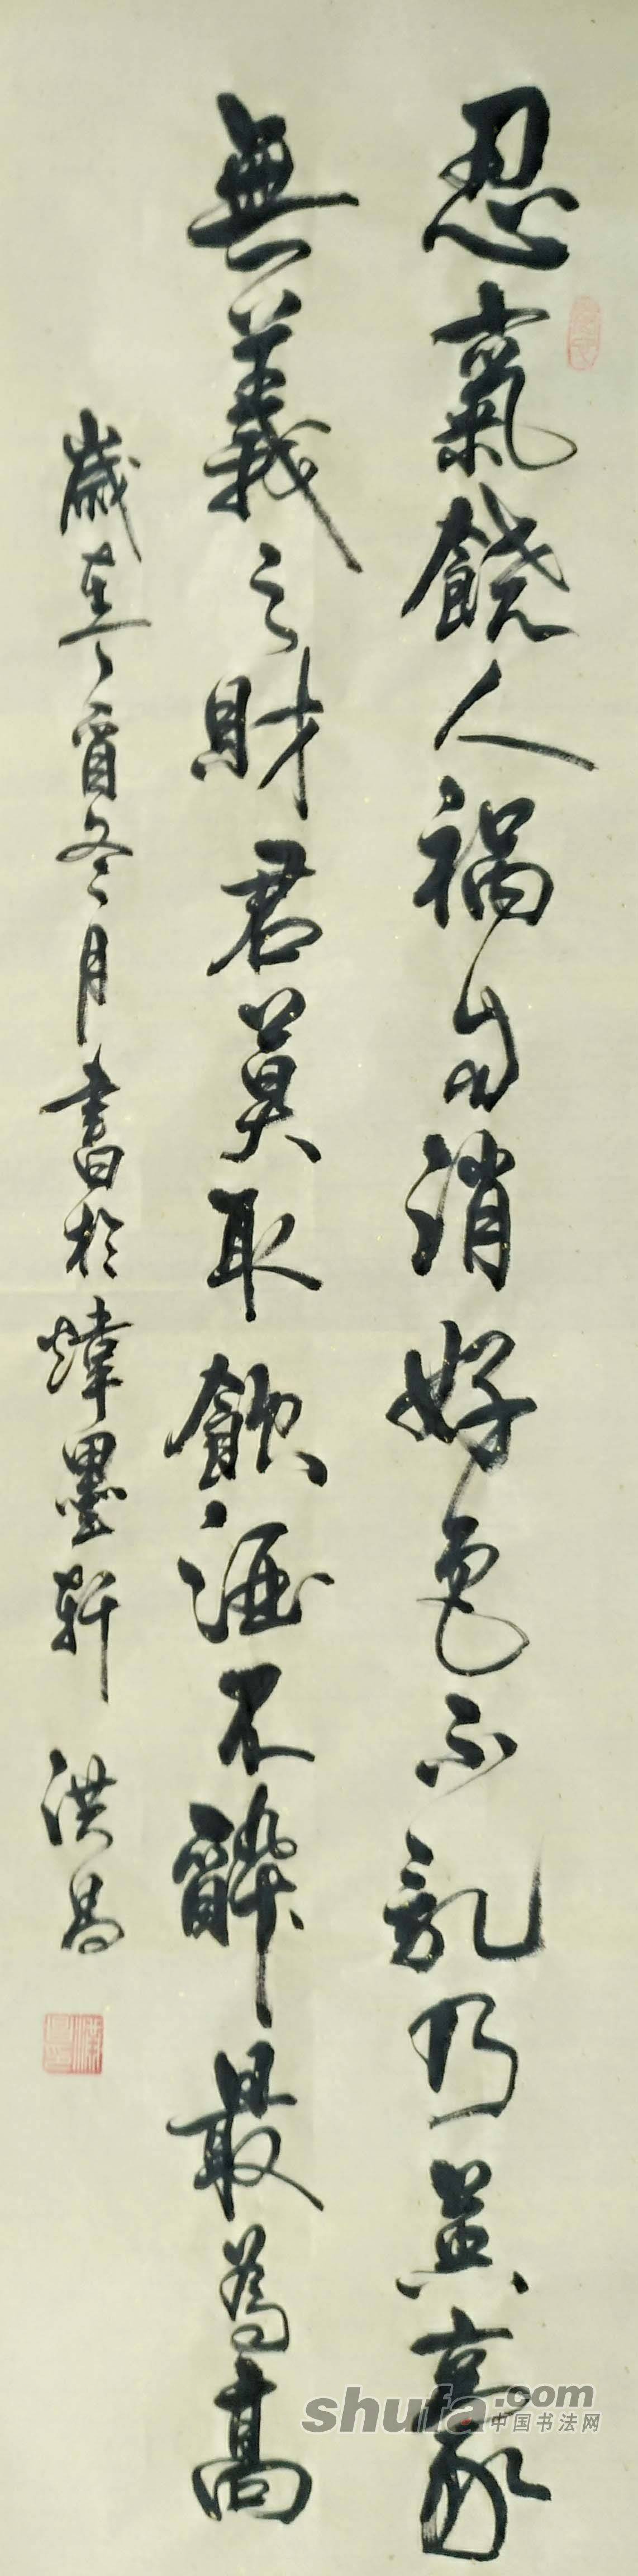 忍氣饒人禍自消好色不亂乃英豪
無義之財君莫取飲酒不醉最為高
歲在壬寅冬月書於煒墨軒 洪昌
shufa.com
中国书法网